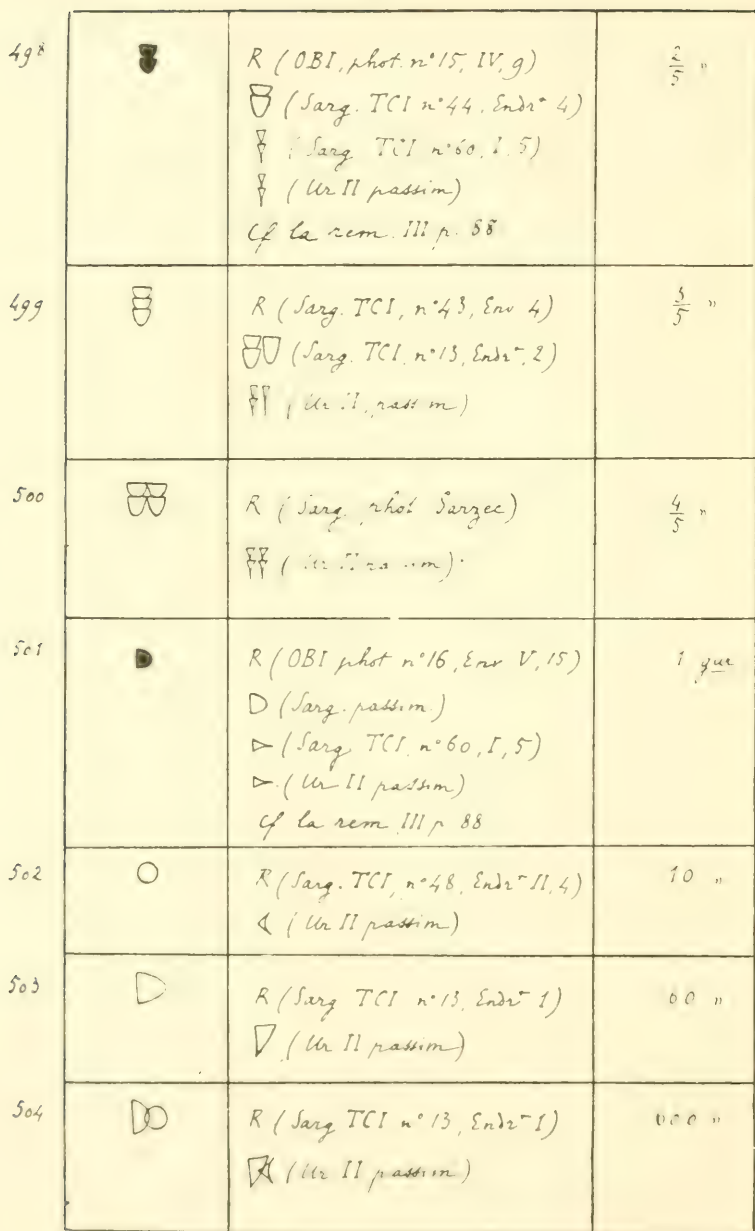 498 R (OBI, phot. n°15, IV, 9) 2/5 "
(Sarg. TCI n°44. Endrt 4)
(Sarg TCI n°60, I, 5)
(Ur II passim)
Cf la rem. III p. 88
499 R (Sarg. TCI, n°43, Env 4) 3/5 "
(Sarg. TCI, n°13, Endrt, 2)
(Ur II, passim)
500 R (Sarg. phot Sarzec) 4/5 "
(Ur II passim).
501 R (OBI phot n°16, Env V, 15) 1 gur
(Sarg. passim.)
(Sarg TCI, n°60, I, 5)
(Ur II passim)
Cf la rem III p 88
502 R (Sarg. TCI, n°48, Endrt II, 4) 10 "
(Ur II passim)
503 R (Sarg TCI n°13, Endrt 1) "
(Ur II passim)
504 R (Sarg TCI n°13, Endrt 1) "
(Ur II passim)